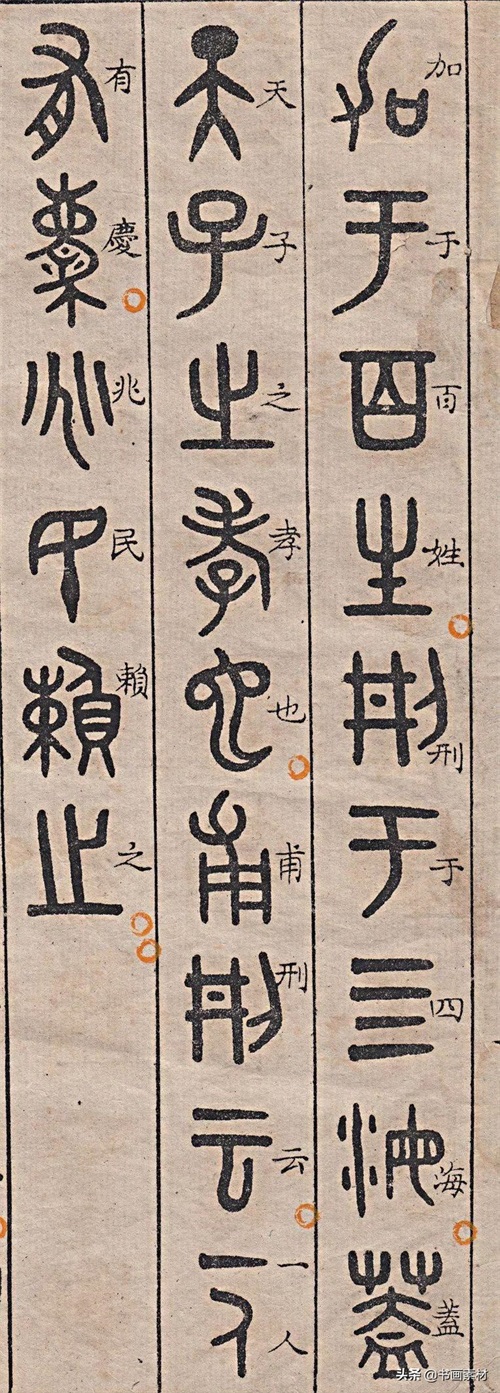 加于百姓刑于四海蓋
天子之孝也甫刑云一人
有慶兆民賴之
头条@书画素材